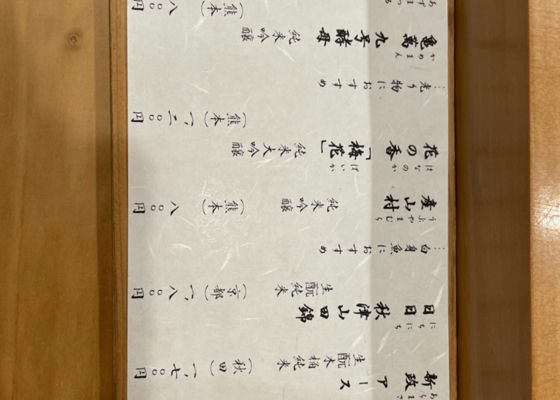 あらまさ
新政 アース 生酛木桶純米 (秋田) 一、七〇〇円
にちにち
日日 秋津山田錦 生酛純米 (京都) 一、八〇〇円
…白身魚におすすめ
うぶやまむら
産山村 純米吟醸 (熊本) 八〇〇円
はなのか ばいか
花の香「梅花」 純米大吟醸 (熊本) 一、二〇〇円
…光り物におすすめ
かめまん
亀萬 九号酵母 純米吟醸 (熊本) 八〇〇円